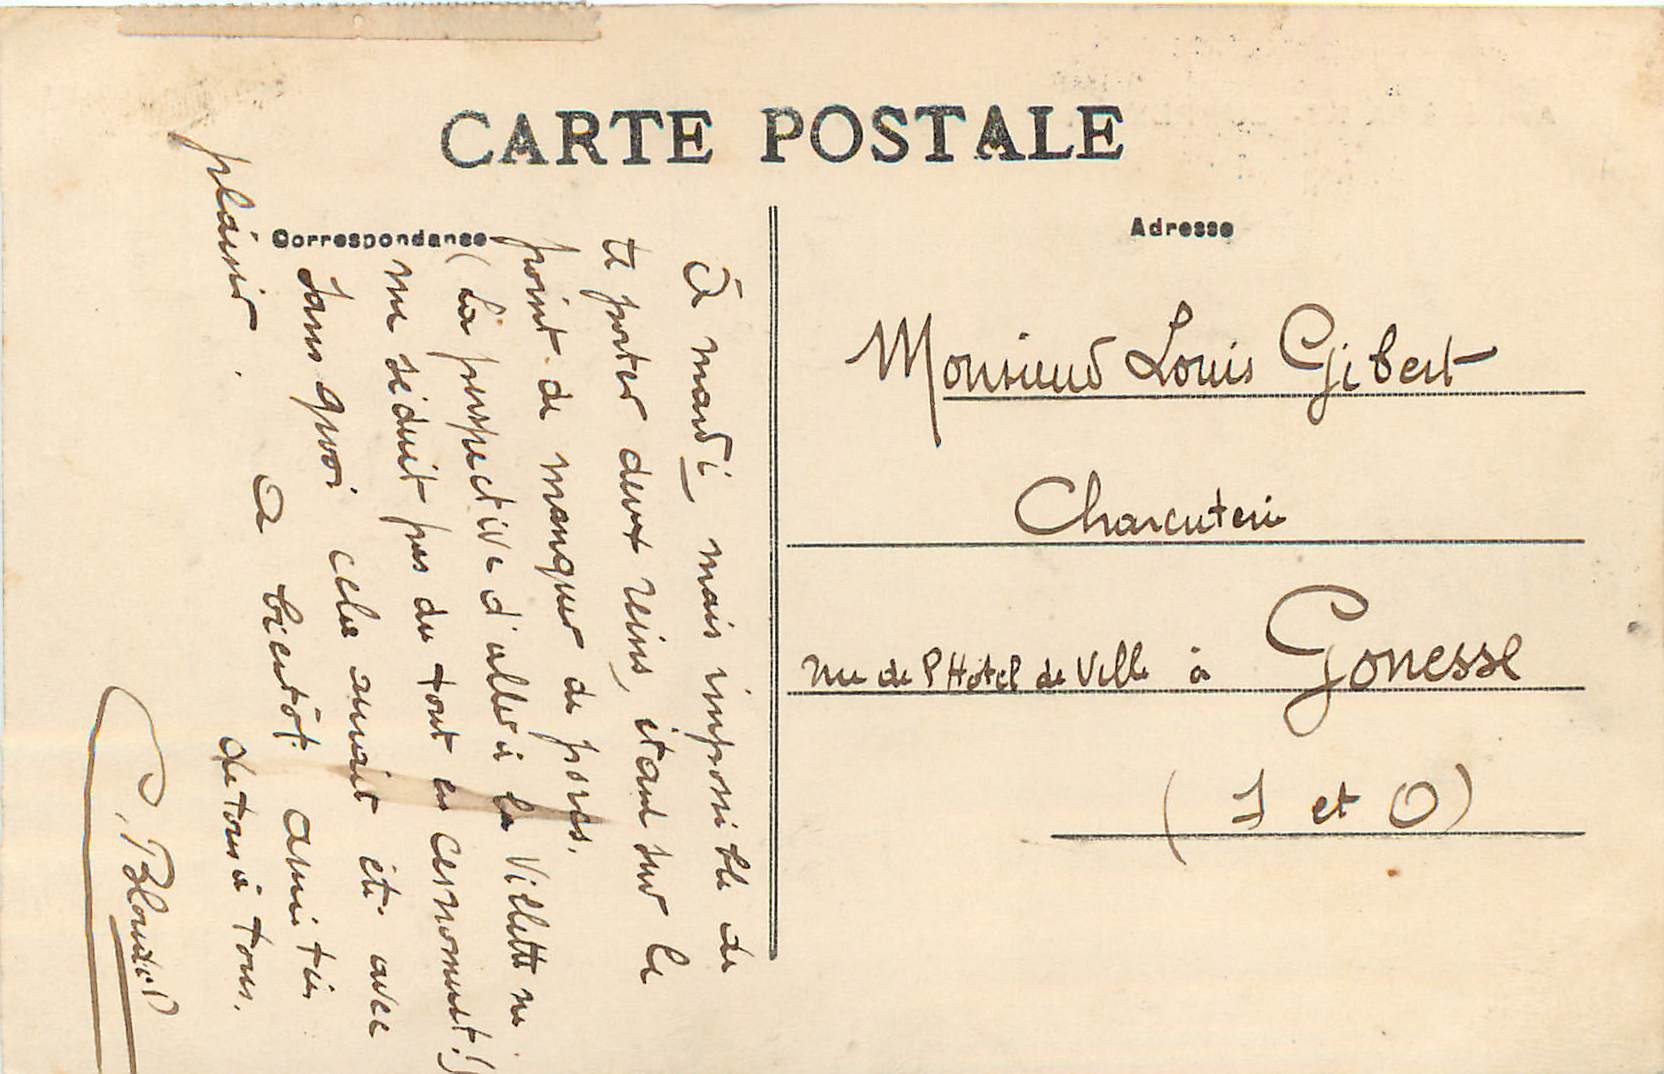 CARTE POSTALE
Correspondance
Adresse
à mardi, mais impossible de
te porter deux reins, étant sur le
point de manquer de porcs.
(La perspective d'aller à la Villette ne
me séduit pas du tout en ce moment!)
Sans quoi cela aurait été avec
plaisir.
A bientôt. Amitiés
de tous à tous.
Monsieur Louis Gibert
Charcuterie
rue de l'Hôtel de Ville à Gonesse
(S et O)